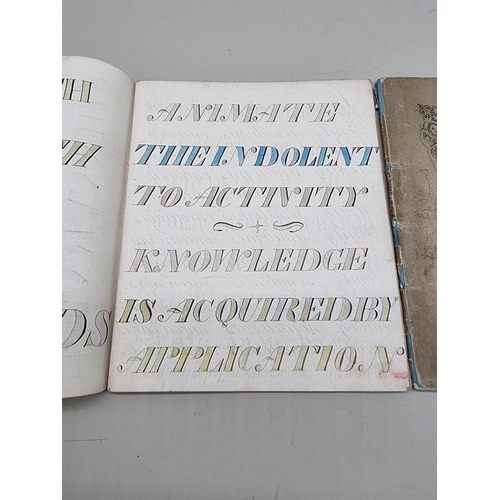 TH
TH
DS
ANIMATE
THE INDOLENT
TO ACTIVITY
KNOWLEDGE
IS ACQUIRED BY
APPLICATION